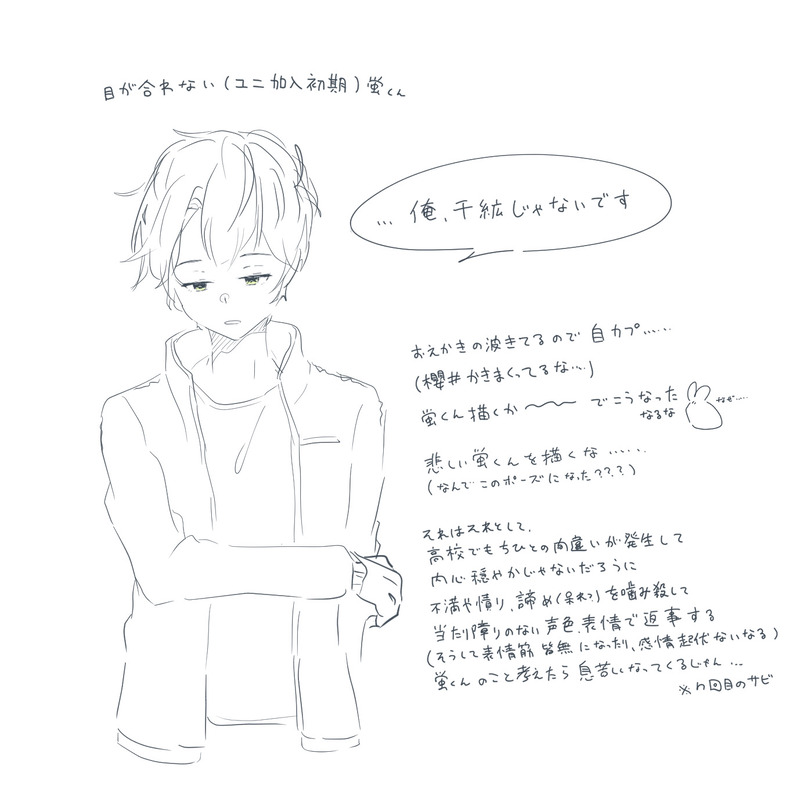 目が合わない(ユニ加入初期)蛍くん
… 俺、千紘じゃないです
おえかきの波きてるので 自カプ……
(櫻井かきまくってるな…)
蛍くん描くか〜〜 でこうなった
なるな
なぜ……
悲しい蛍くんを描くな ……
(なんでこのポーズになった???)
それはそれとして、
高校でもちひとの間違いが発生して
内心穏やかじゃないだろうに
不満や憤り、諦め(呆れ?)を噛み殺して
当たり障りのない声色、表情で返事する
(そうして表情筋皆無になったり、感情起伏ないなる)
蛍くんのこと考えたら息苦しくなってくるじゃん…
※n回目のサビ